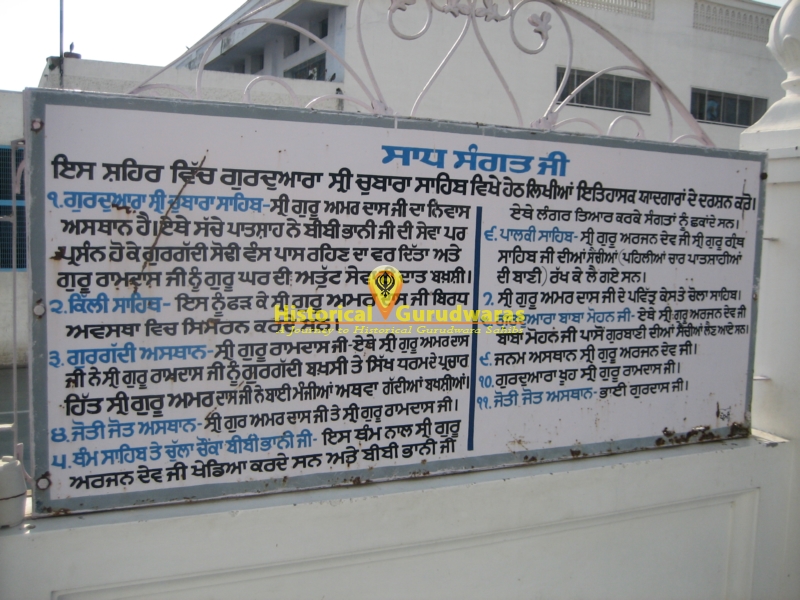 ਸਾਧ ਸੰਗਤ ਜੀ
ਇਸ ਸ਼ਹਿਰ ਵਿੱਚ ਗੁਰਦੁਆਰਾ ਸ੍ਰੀ ਚੁਬਾਰਾ ਸਾਹਿਬ ਵਿਖੇ ਹੇਠ ਲਿਖੀਆਂ ਇਤਿਹਾਸਕ ਯਾਦਗਾਰਾਂ ਦੇ ਦਰਸ਼ਨ ਕਰੋ।
੧. ਗੁਰਦੁਆਰਾ ਸ੍ਰੀ ਚੁਬਾਰਾ ਸਾਹਿਬ- ਸ੍ਰੀ ਗੁਰੂ ਅਮਰ ਦਾਸ ਜੀ ਦਾ ਨਿਵਾਸ
ਅਸਥਾਨ ਹੈ। ਏਥੇ ਸੱਚੇ ਪਾਤਸ਼ਾਹ ਨੇ ਬੀਬੀ ਭਾਨੀ ਜੀ ਦੀ ਸੇਵਾ ਪਰ
ਪ੍ਰਸੰਨ ਹੋ ਕੇ ਗੁਰਗੱਦੀ ਸੋਢੀ ਵੰਸ ਪਾਸ ਰਹਿਣ ਦਾ ਵਰ ਦਿੱਤਾ ਅਤੇ
ਗੁਰੂ ਰਾਮਦਾਸ ਜੀ ਨੂੰ ਗੁਰੂ ਘਰ ਦੀ ਅਤੁੱਟ ਸੇਵਾ ਦੀ ਦਾਤ ਬਖ਼ਸ਼ੀ।
੨. ਕਿੱਲੀ ਸਾਹਿਬ- ਇਸ ਨੂੰ ਫੜ ਕੇ ਸ੍ਰੀ ਗੁਰੂ ਅਮਰ ਦਾਸ ਜੀ ਬਿਰਧ
ਅਵਸਥਾ ਵਿਚ ਸਿਮਰਨ ਕਰਦੇ ਸਨ।
੩. ਗੁਰਗੱਦੀ ਅਸਥਾਨ- ਸ੍ਰੀ ਗੁਰੂ ਰਾਮਦਾਸ ਜੀ- ਏਥੇ ਸ੍ਰੀ ਗੁਰੂ ਅਮਰ ਦਾਸ
ਜੀ ਨੇ ਸ੍ਰੀ ਗੁਰੂ ਰਾਮਦਾਸ ਜੀ ਨੂੰ ਗੁਰਗੱਦੀ ਬਖਸੀ ਤੇ ਸਿੱਖ ਧਰਮ ਦੇ ਪ੍ਰਚਾਰ
ਹਿੱਤ ਸ੍ਰੀ ਗੁਰੂ ਅਮਰ ਦਾਸ ਜੀ ਨੇ ਬਾਈ ਮੰਜੀਆਂ ਅਥਵਾ ਗੱਦੀਆਂ ਬਖਸ਼ੀਆਂ।
੪. ਜੋਤੀ ਜੋਤ ਅਸਥਾਨ- ਸ੍ਰੀ ਗੁਰ ਅਮਰ ਦਾਸ ਜੀ ਤੇ ਸ੍ਰੀ ਗੁਰੂ ਰਾਮਦਾਸ ਜੀ।
੫. ਥੰਮ ਸਾਹਿਬ ਤੇ ਚੁੱਲਾ ਚੌਂਕਾ ਬੀਬੀ ਭਾਨੀ ਜੀ- ਇਸ ਥੰਮ ਨਾਲ ਸ੍ਰੀ ਗੁਰੂ
ਅਰਜਨ ਦੇਵ ਜੀ ਖੇਡਿਆ ਕਰਦੇ ਸਨ ਅਤੇ ਬੀਬੀ ਭਾਨੀ ਜੀ
ਏਥੇ ਲੰਗਰ ਤਿਆਰ ਕਰਕੇ ਸੰਗਤਾਂ ਨੂੰ ਛਕਾਂਦੇ ਸਨ।
੬. ਪਾਲਕੀ ਸਾਹਿਬ- ਸ੍ਰੀ ਗੁਰੂ ਅਰਜਨ ਦੇਵ ਜੀ ਸ੍ਰੀ ਗੁਰੂ ਗ੍ਰੰਥ
ਸਾਹਿਬ ਜੀ ਦੀਆਂ ਸੈਂਚੀਆਂ (ਪਹਿਲੀਆਂ ਚਾਰ ਪਾਤਸ਼ਾਹੀਆਂ
ਦੀ ਬਾਣੀ) ਰੱਖ ਕੇ ਲੈ ਗਏ ਸਨ।
੭. ਸ੍ਰੀ ਗੁਰੂ ਅਮਰ ਦਾਸ ਜੀ ਦੇ ਪਵਿੱਤ੍ਰ ਕੇਸ ਤੇ ਚੋਲਾ ਸਾਹਿਬ।
ਗੁਰਦੁਆਰਾ ਬਾਬਾ ਮੋਹਨ ਜੀ- ਏਥੇ ਸ੍ਰੀ ਗੁਰੂ ਅਰਜਨ ਦੇਵ ਜੀ
ਬਾਬਾ ਮੋਹਨ ਜੀ ਪਾਸੋਂ ਗੁਰਬਾਣੀ ਦੀਆਂ ਸੈਂਚੀਆਂ ਲੈਣ ਆਏ ਸਨ।
੯. ਜਨਮ ਅਸਥਾਨ ਸ੍ਰੀ ਗੁਰੂ ਅਰਜਨ ਦੇਵ ਜੀ।
੧੦. ਗੁਰਦੁਆਰਾ ਖੂਹ ਸ੍ਰੀ ਗੁਰੂ ਰਾਮਦਾਸ ਜੀ।
੧੧. ਜੋਤੀ ਜੋਤ ਅਸਥਾਨ- ਭਾਈ ਗੁਰਦਾਸ ਜੀ।
Historical Gurudwaras
A Journey to Historical Gurudwara Sahibs